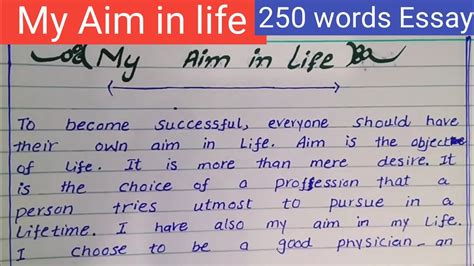 My Aim in life 250 words Essay
My Aim in Life
To become successful, everyone should have
their own aim in Life. Aim is the object
of Life. It is more than mere desire. It
is the choice of a proffession that a
person tries utmost to pursue in a
Lifetime. I have also my aim in my Life.
I choose to be a good physician - an